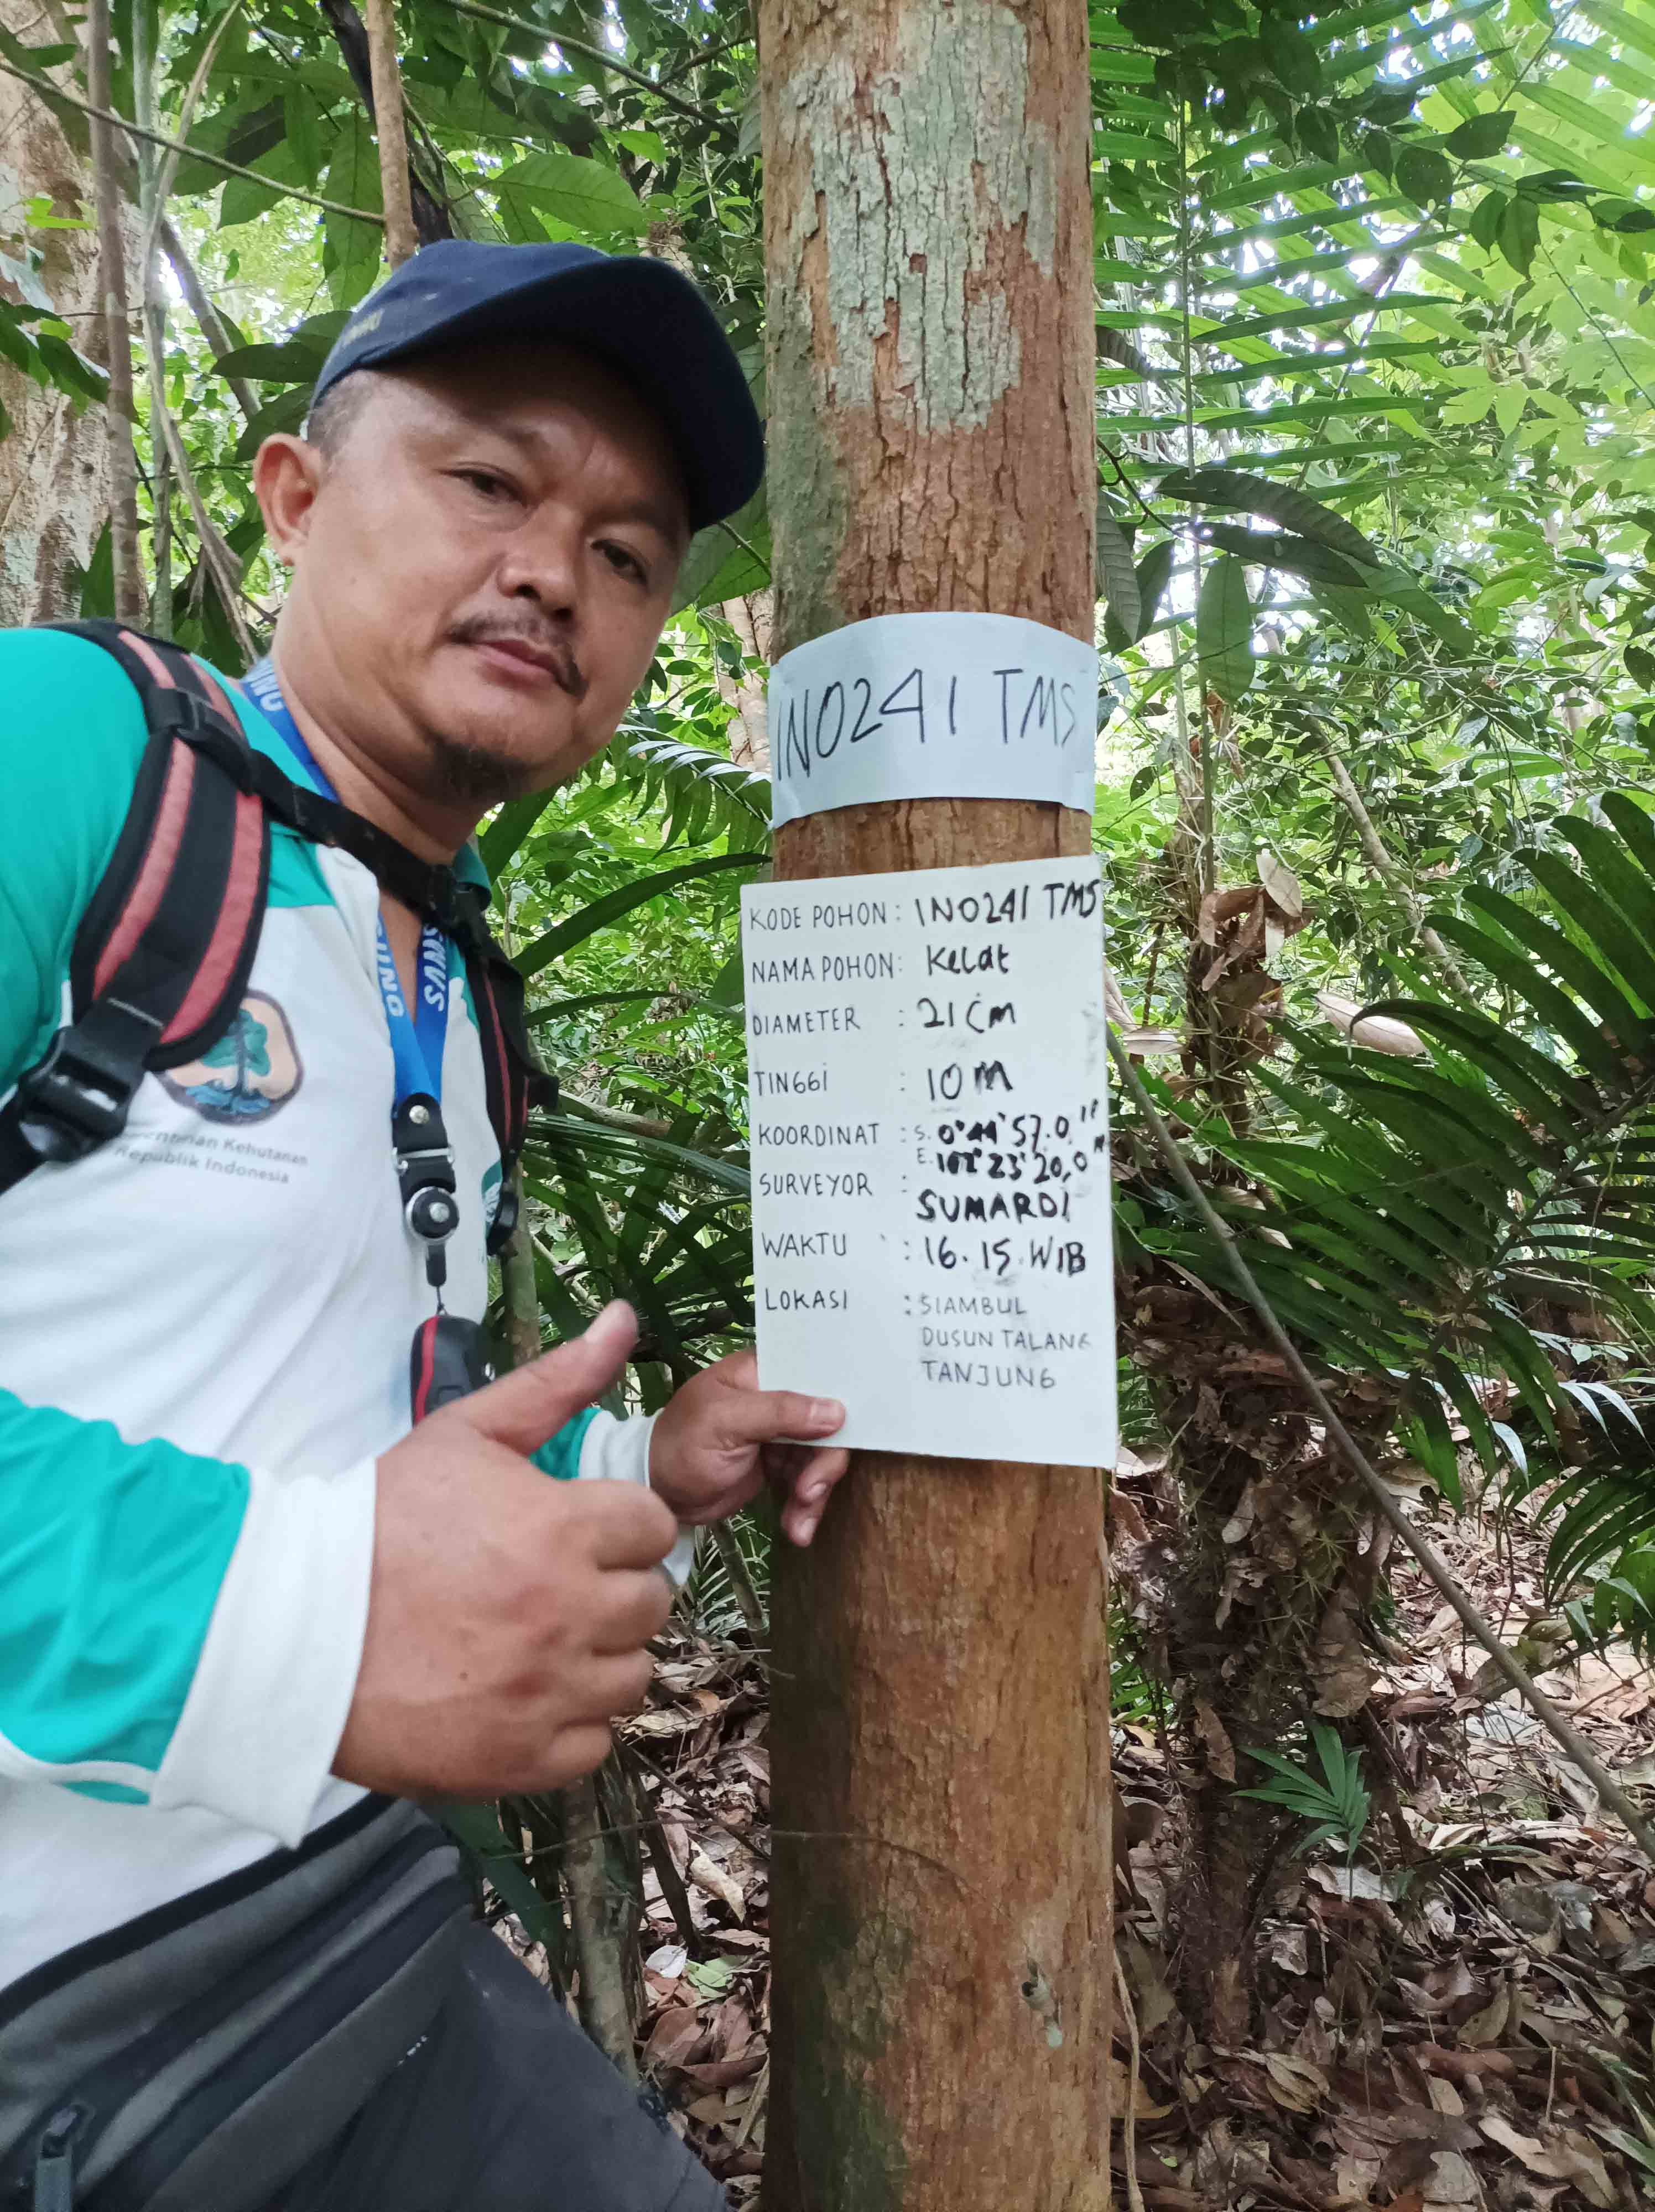 INO241 TMS
KODE POHON : INO241 TMS
NAMA POHON : Kelat
DIAMETER : 21 cm
TINGGI : 10 M
KOORDINAT : S. 0°44'57.0"
E. 102°23'20,0"
SURVEYOR : SUMARDI
WAKTU : 16.15 WIB
LOKASI : SIAMBUL
DUSUN TALANG
TANJUNG
Kehutanan
Republik Indonesia
SAMSUNG